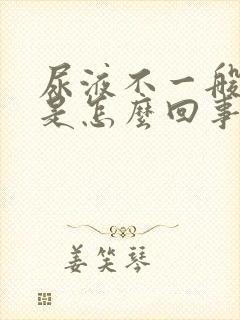 尿液不一般
是怎麼回事
姜笑琴